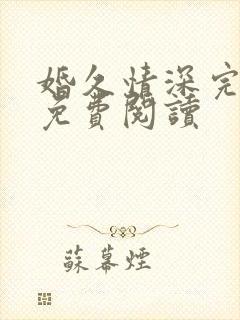 婚久情深完
免費閱讀
蘇幕煙